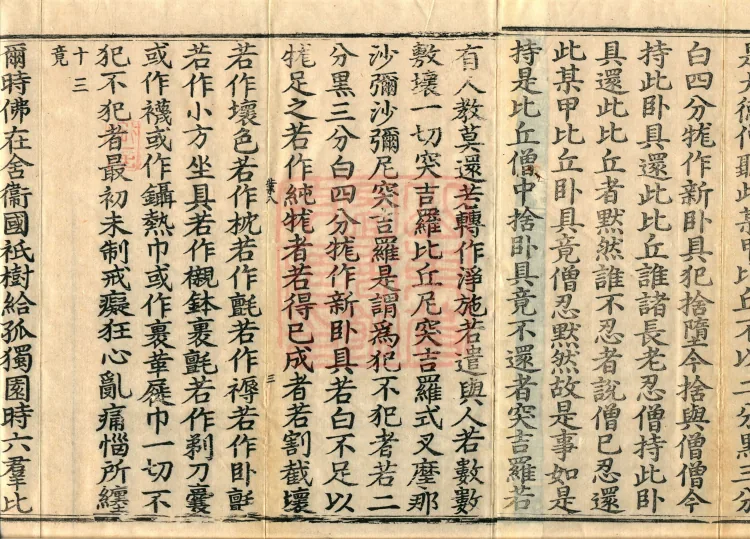 白四分牻作新卧具犯捨墮今捨與僧僧今
持此卧具還此比丘誰諸長老忍僧持此卧
具還此比丘者默然誰不忍者說僧已忍還
此某甲比丘卧具竟僧忍默然故是事如是
持是比丘僧中捨卧具竟不還者突吉羅若
有人教莫還若轉作淨施若遣與人若數數
敷壞一切突吉羅比丘尼突吉羅式叉摩那
沙彌沙彌尼突吉羅是謂為犯不犯者若二
分黑三分白四分牻作新卧具若白不足以
牻足之若作純牻者若得已成者若割截壞
三
若作壞色若作枕若作氈若作褥若作卧氈
若作小方坐具若作襯鉢裹氈若作剃刀囊
或作襪或作鑷熱巾或作裹革屣巾一切不
犯不犯者最初未制戒癡狂心亂痛惱所纏
十三
竟
爾時佛在舍衛國祇樹給孤獨園時六羣比